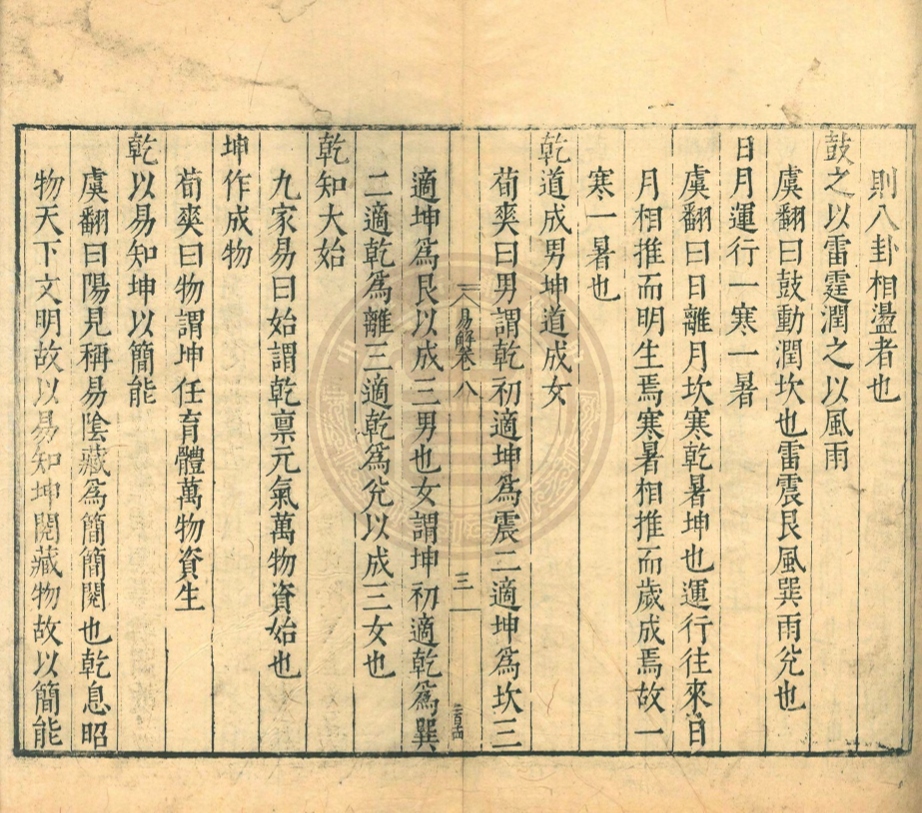 則八卦相盪者也
鼓之以雷霆潤之以風雨
虞翻曰鼓動潤坎也雷震艮風巽雨兌也
日月運行一寒一暑
虞翻曰日離月坎寒乾暑坤也運行往來日
月相推而明生焉寒暑相推而歲成焉故一
寒一暑也
乾道成男坤道成女
荀爽曰男謂乾初適坤爲震二適坤爲坎三
易解卷八
三
適坤爲艮以成三男也女謂坤初適乾爲巽
二適乾爲離三適乾爲兌以成三女也
乾知大始
九家易曰始謂乾禀元氣萬物資始也
坤作成物
荀爽曰物謂坤任育體萬物資生
乾以易知坤以簡能
虞翻曰陽見稱易陰藏爲簡簡閱也乾息昭
物天下文明故以易知坤閱藏物故以簡能